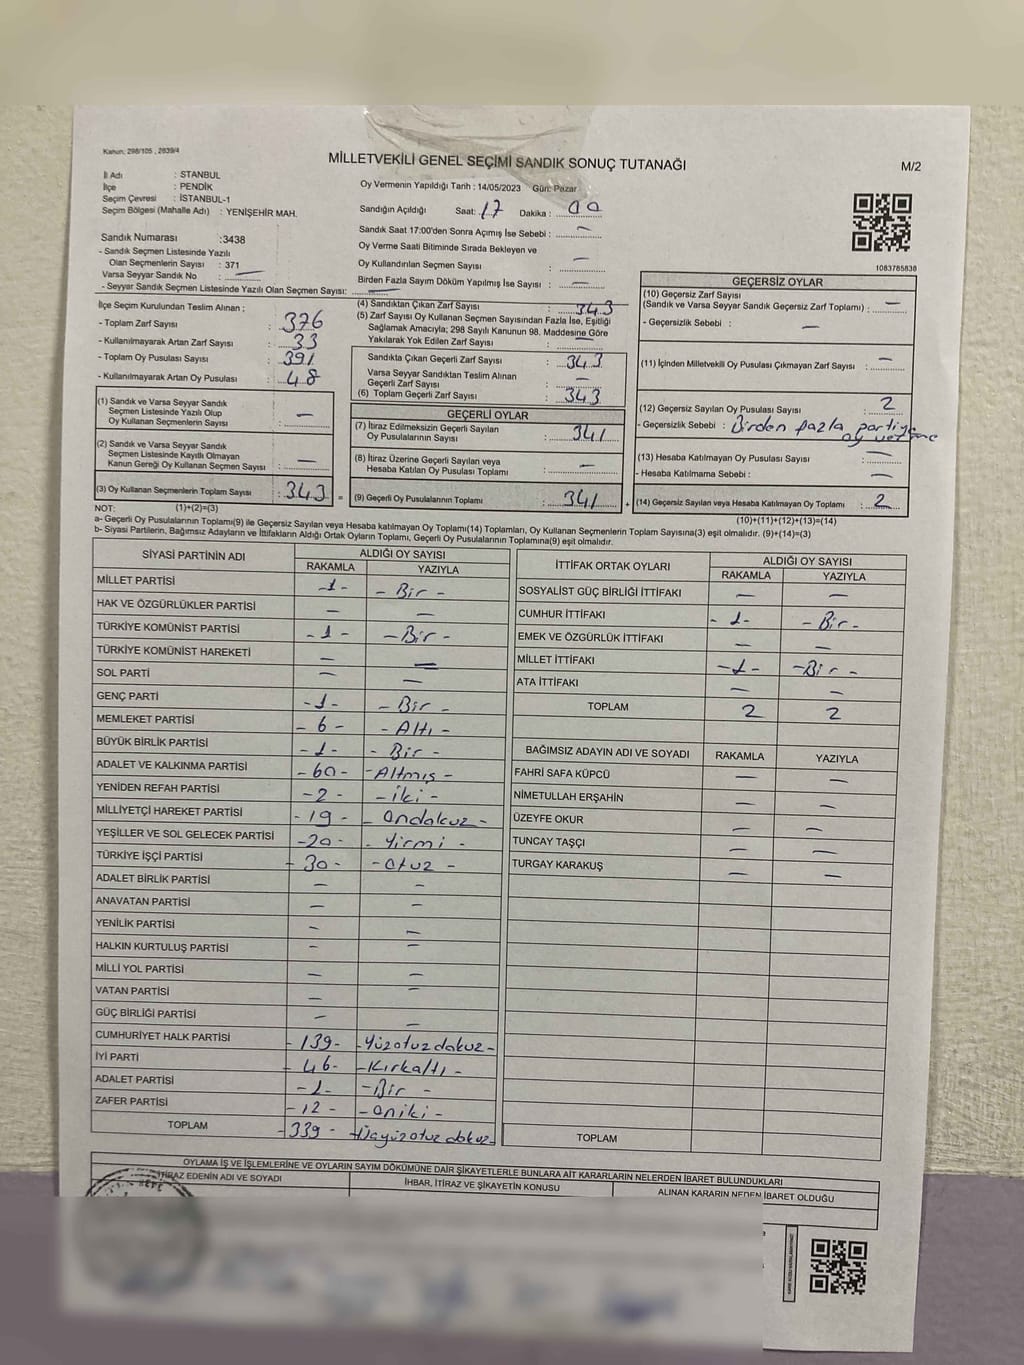 Kanun: 298/105 , 2839/4
MİLLETVEKİLİ GENEL SEÇİMİ SANDIK SONUÇ TUTANAĞI
M/2
İl Adı : İSTANBUL
İlçe : PENDİK
Seçim Çevresi : İSTANBUL-1
Seçim Bölgesi (Mahalle Adı) : YENİŞEHİR MAH.
Oy Vermenin Yapıldığı Tarih : 14/05/2023 Gün: Pazar
Sandığın Açıldığı Saat: 17 Dakika : 00
Sandık Saat 17:00'den Sonra Açımış İse Sebebi : —
Oy Verme Saati Bitiminde Sırada Bekleyen ve
Oy Kullandırılan Seçmen Sayısı : —
Birden Fazla Sayım Döküm Yapılmış İse Sayısı : —
Sandık Numarası :3438
- Sandık Seçmen Listesinde Yazılı
Olan Seçmenlerin Sayısı : 371
Varsa Seyyar Sandık No : —
- Seyyar Sandık Seçmen Listesinde Yazılı Olan Seçmen Sayısı: —
1083785838
İlçe Seçim Kurulundan Teslim Alınan ;
- Toplam Zarf Sayısı : 376
- Kullanılmayarak Artan Zarf Sayısı : 33
- Toplam Oy Pusulası Sayısı : 391
- Kullanılmayarak Artan Oy Pusulası : 48
(1) Sandık ve Varsa Seyyar Sandık
Seçmen Listesinde Yazılı Olup
Oy Kullanan Seçmenlerin Sayısı : —
(2) Sandık ve Varsa Seyyar Sandık
Seçmen Listesinde Kayıtlı Olmayan
Kanun Gereği Oy Kullanan Seçmen Sayısı : —
(3) Oy Kullanan Seçmenlerin Toplam Sayısı : 343 =
(1)+(2)=(3)
(4) Sandıktan Çıkan Zarf Sayısı : 343
(5) Zarf Sayısı Oy Kullanan Seçmen Sayısından Fazla İse, Eşitliği
Sağlamak Amacıyla; 298 Sayılı Kanunun 98. Maddesine Göre
Yakılarak Yok Edilen Zarf Sayısı : —
Sandıkta Çıkan Geçerli Zarf Sayısı : 343
Varsa Seyyar Sandıktan Teslim Alınan
Geçerli Zarf Sayısı : —
(6) Toplam Geçerli Zarf Sayısı : 343
GEÇERLİ OYLAR
(7) İtiraz Edilmeksizin Geçerli Sayılan
Oy Pusulalarının Sayısı : 341
(8) İtiraz Üzerine Geçerli Sayılan veya
Hesaba Katılan Oy Pusulası Toplamı : —
(9) Geçerli Oy Pusulalarının Toplamı : 341 +
GEÇERSİZ OYLAR
(10) Geçersiz Zarf Sayısı
(Sandık ve Varsa Seyyar Sandık Geçersiz Zarf Toplamı) : —
- Geçersizlik Sebebi : —
(11) İçinden Milletvekili Oy Pusulası Çıkmayan Zarf Sayısı : —
(12) Geçersiz Sayılan Oy Pusulası Sayısı : 2
- Geçersizlik Sebebi : Birden fazla partiye
oy verme
(13) Hesaba Katılmayan Oy Pusulası Sayısı : —
- Hesaba Katılmama Sebebi : —
(14) Geçersiz Sayılan veya Hesaba Katılmayan Oy Toplamı : 2
(10)+(11)+(12)+(13)=(14)
NOT:
a- Geçerli Oy Pusulalarının Toplamı(9) ile Geçersiz Sayılan veya Hesaba katılmayan Oy Toplamı(14) Toplamları, Oy Kullanan Seçmenlerin Toplam Sayısına(3) eşit olmalıdır. (9)+(14)=(3)
b- Siyasi Partilerin, Bağımsız Adayların ve İttifakların Aldığı Ortak Oyların Toplamı, Geçerli Oy Pusulalarının Toplamına(9) eşit olmalıdır.
SİYASİ PARTİNİN ADI ALDIĞI OY SAYISI
RAKAMLA YAZIYLA
MİLLET PARTİSİ -1- - Bir -
HAK VE ÖZGÜRLÜKLER PARTİSİ — —
TÜRKİYE KOMÜNİST PARTİSİ -1- - Bir -
TÜRKİYE KOMÜNİST HAREKETİ — —
SOL PARTİ — —
GENÇ PARTİ -1- - Bir -
MEMLEKET PARTİSİ - 6 - - Altı -
BÜYÜK BİRLİK PARTİSİ -1- - Bir -
ADALET VE KALKINMA PARTİSİ -60- -Altmış -
YENİDEN REFAH PARTİSİ -2- - İki -
MİLLİYETÇİ HAREKET PARTİSİ -19- - Ondokuz -
YEŞİLLER VE SOL GELECEK PARTİSİ -20- - Yirmi -
TÜRKİYE İŞÇİ PARTİSİ - 30 - - Otuz -
ADALET BİRLİK PARTİSİ — —
ANAVATAN PARTİSİ — —
YENİLİK PARTİSİ — —
HALKIN KURTULUŞ PARTİSİ — —
MİLLİ YOL PARTİSİ — —
VATAN PARTİSİ — —
GÜÇ BİRLİĞİ PARTİSİ — —
CUMHURİYET HALK PARTİSİ - 139- -Yüzotuzdokuz-
İYİ PARTİ - 46- -Kırkaltı -
ADALET PARTİSİ -1- -Bir -
ZAFER PARTİSİ -12- -Oniki -
TOPLAM -339- -Üçyüzotuzdokuz-
İTTİFAK ORTAK OYLARI ALDIĞI OY SAYISI
RAKAMLA YAZIYLA
SOSYALİST GÜÇ BİRLİĞİ İTTİFAKI — —
CUMHUR İTTİFAKI - 1- - Bir-
EMEK VE ÖZGÜRLÜK İTTİFAKI — —
MİLLET İTTİFAKI -1- -Bir -
ATA İTTİFAKI — —
TOPLAM 2 2
BAĞIMSIZ ADAYIN ADI VE SOYADI RAKAMLA YAZIYLA
FAHRİ SAFA KÜPCÜ — —
NİMETULLAH ERŞAHİN — —
ÜZEYFE OKUR — —
TUNCAY TAŞÇI — —
TURGAY KARAKUŞ — —
TOPLAM
OYLAMA İŞ VE İŞLEMLERİNE VE OYLARIN SAYIM DÖKÜMÜNE DAİR ŞİKAYETLERLE BUNLARA AİT KARARLARIN NELERDEN İBARET BULUNDUKLARI
İTİRAZ EDENİN ADI VE SOYADI İHBAR, İTİRAZ VE ŞİKAYETİN KONUSU ALINAN KARARIN NEDEN İBARET OLDUĞU